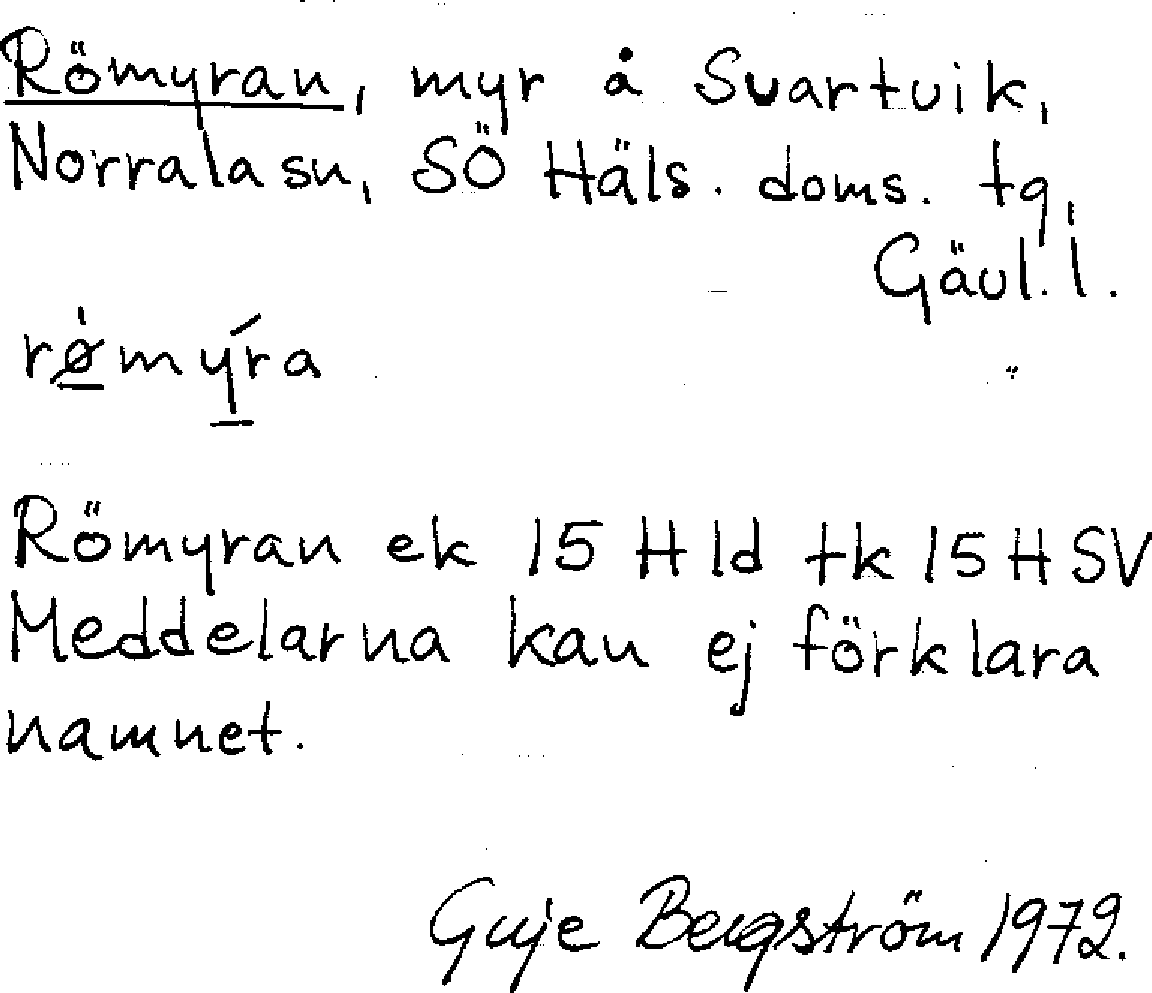 Römyran, myr å Svartvik,
Norrala sn, SÖ Häls. doms. tg,
Gävl. l.
rø̱̍mý̱ra
Römyran ek 15 H ld tk 15 H SV
Meddelarna kan ej förklara
namnet.
Guje Bergström 1972.